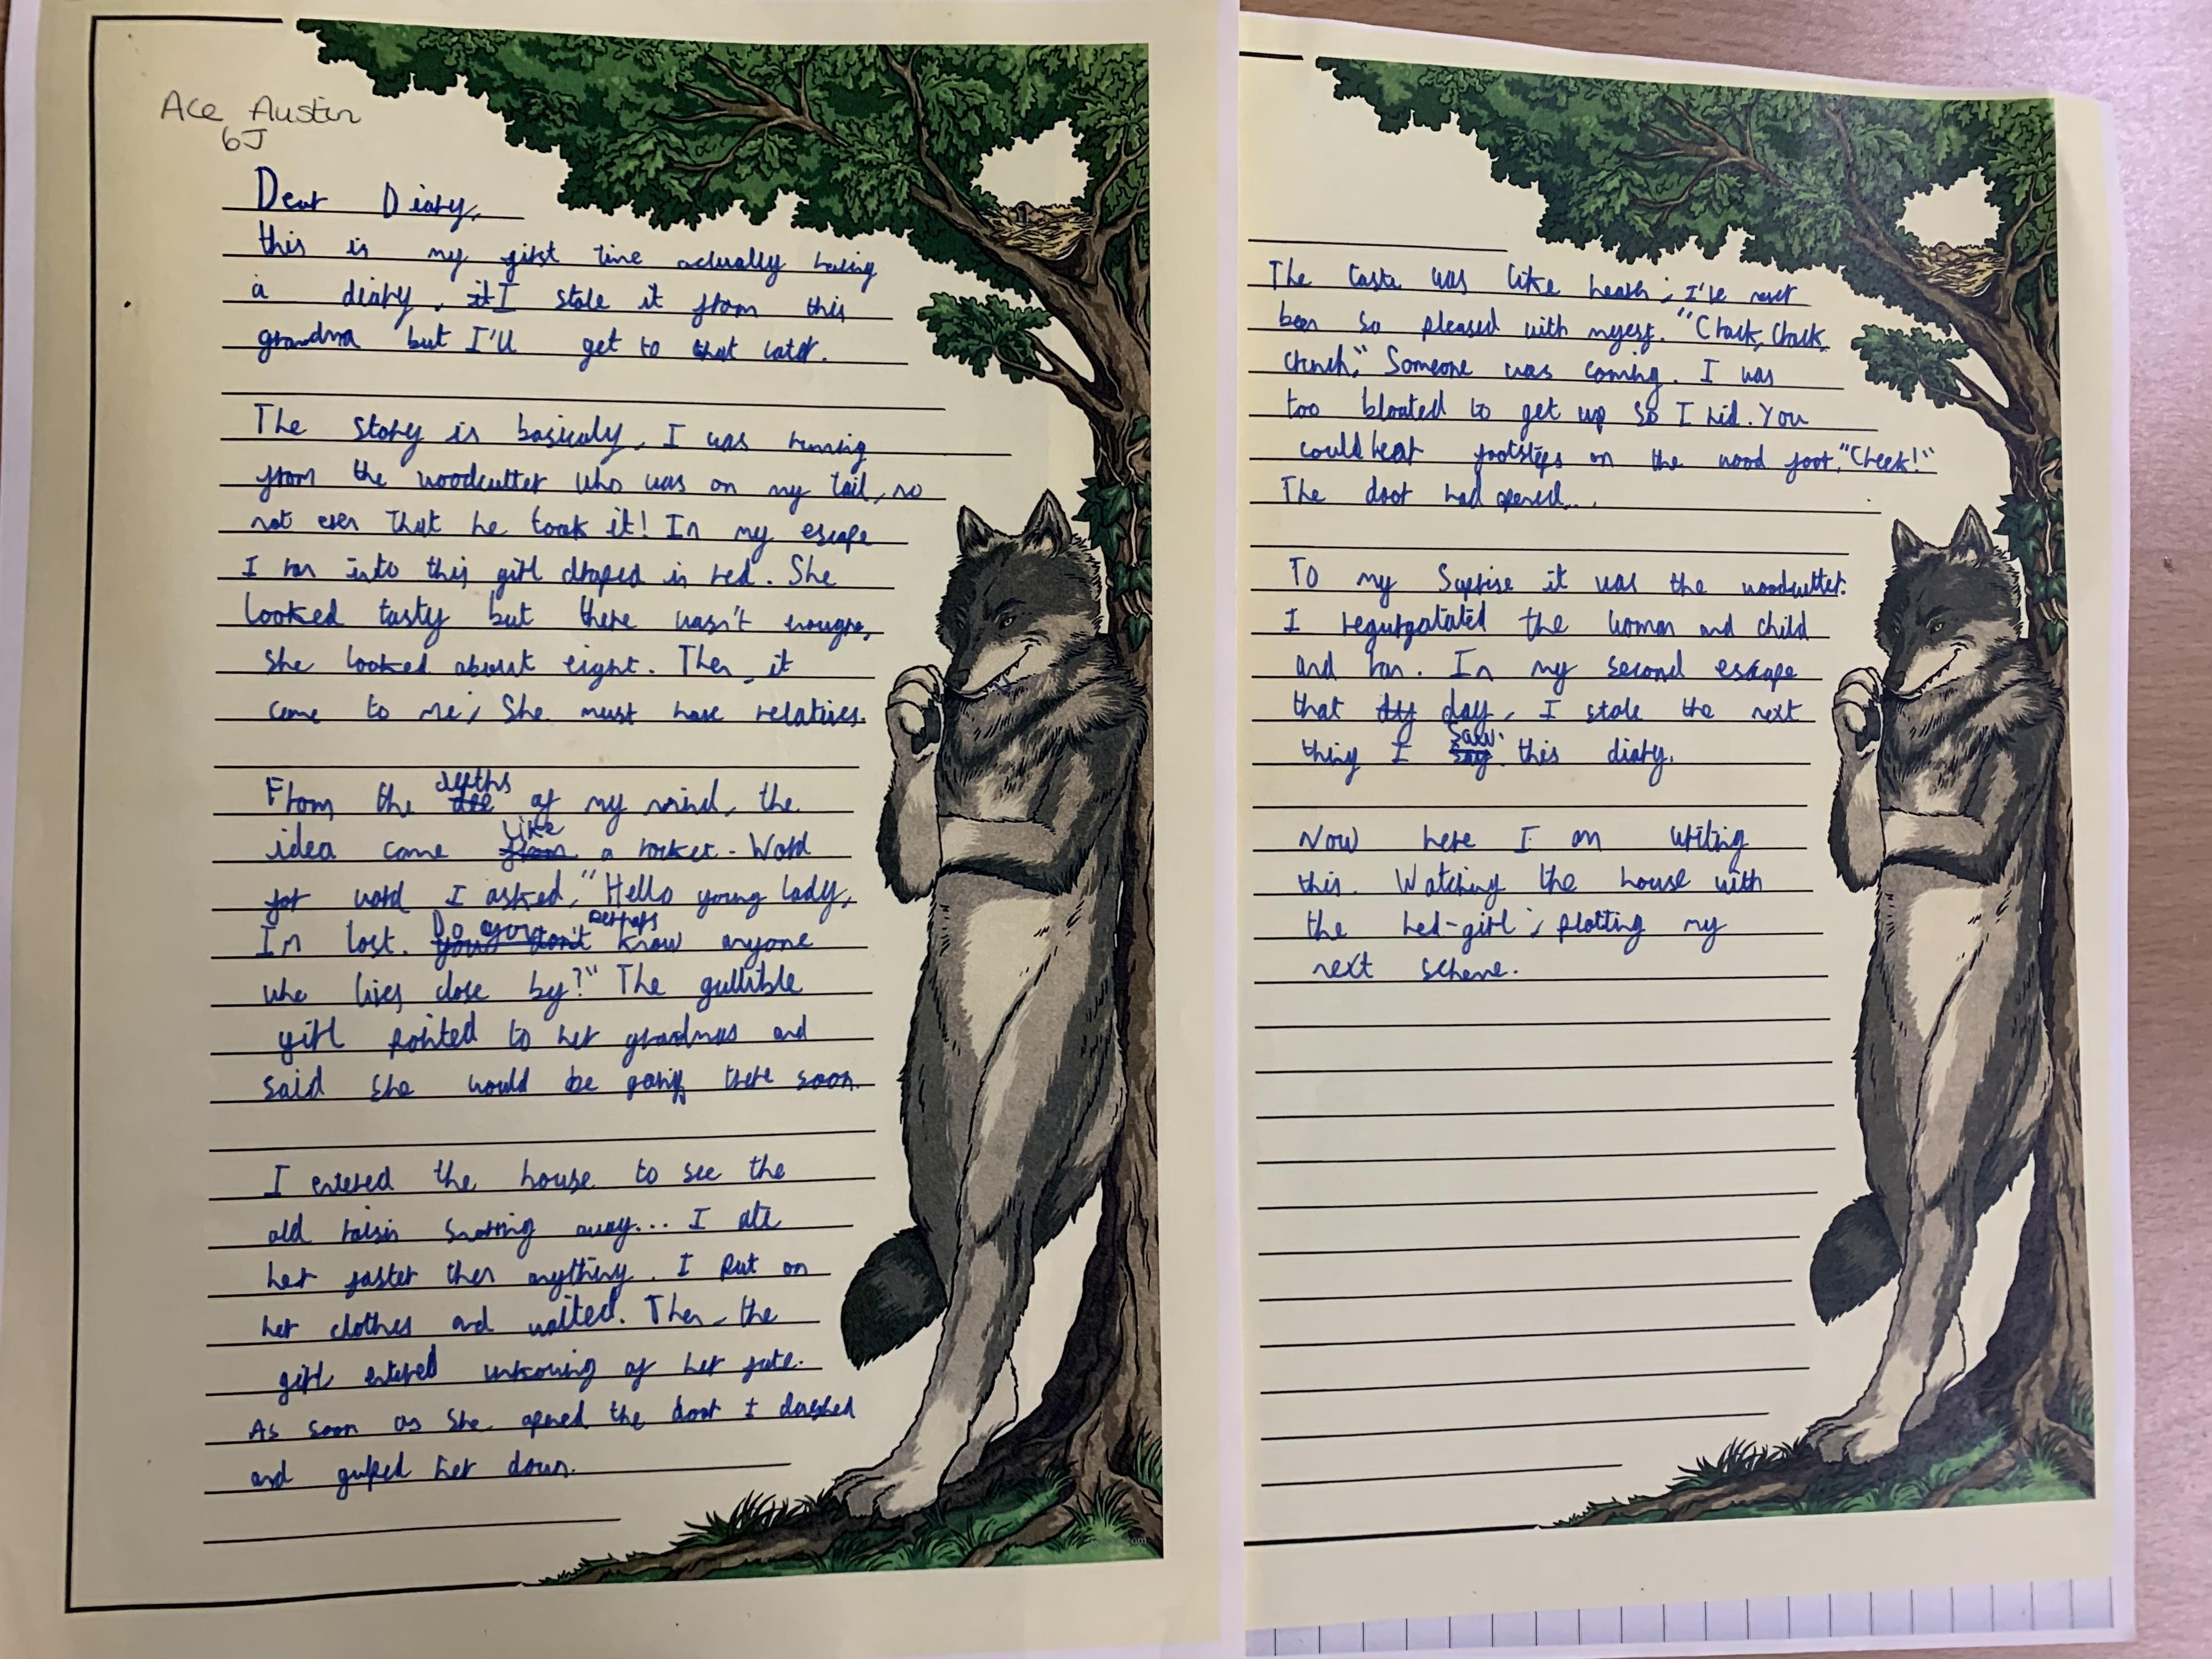 Ace Austin
6J
Dear Diary,
this is my first time actually having
a diary, I stole it from this
grandma but I'll get to that later.
The story is basicaly, I was running
from the woodcutter who was on my tail, no
not even that he took it! In my escape
I ran into this girl draped in red. She
looked tasty but there wasn't
she looked about eight. Then, it
came to me; She must have relatives.
From the depths of my mind, the
idea came like a rocket. Word
for word I asked, "Hello young lady,
Im lost. Do you perhaps know anyone
who lives close by?" The gullible
girl pointed to her grandmas and
said she would be going there soon.
I entered the house to see the
old raisin snorring away... I ate
her faster then anything. I put on
her clothes and waited. Then, the
girl entered unkowing of her fate.
As soon as she opened the door I dashed
and gulped her down.
The taste was like ; I've never
been so pleased with "Crack, Crack,
Crunch," Someone was coming. I was
too bloated to get up so I hid. You
could hear footsteps on the wood foor. "Creek!"
The door had opened...
To my Suprise it was the woodcutter.
I regurgatated the woman and child
and ran. In my second escape
that day, I stole the next
thing I saw. this diary.
Now here I am writing
this. Watching the house with
the red-girl; plotting my
next scheme.